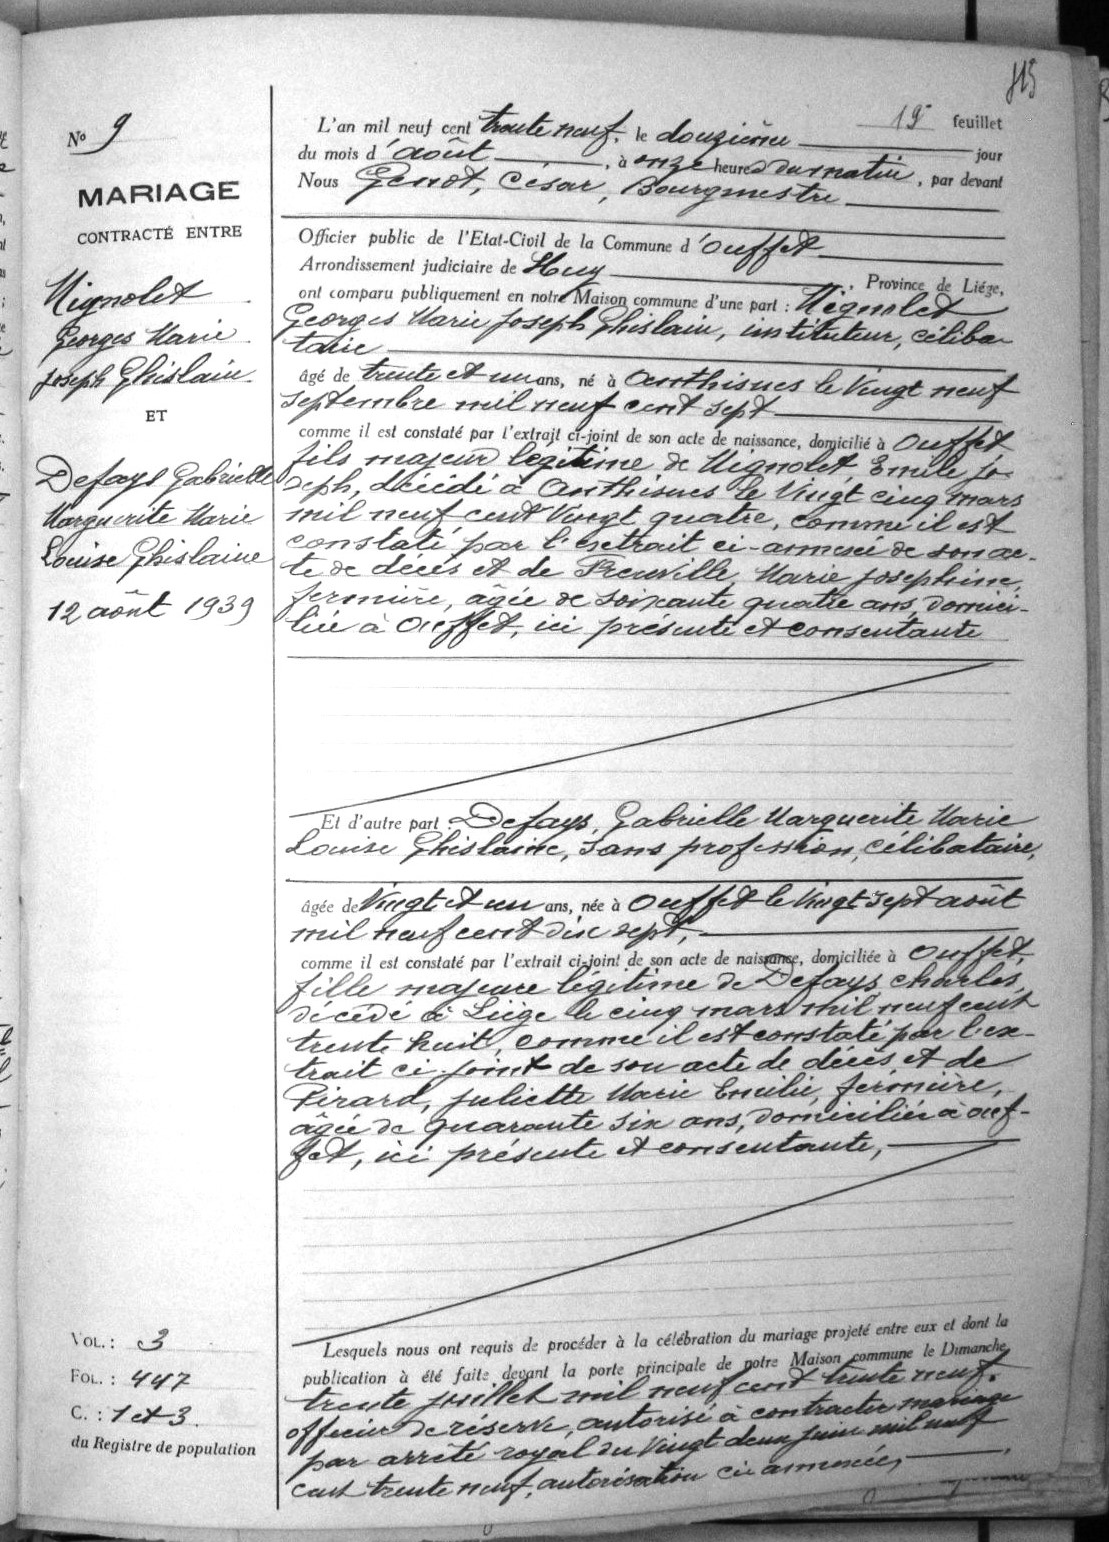 115
15 feuillet
N° 9
MARIAGE
CONTRACTÉ ENTRE
Mignolet
Georges Marie
Joseph Ghislain
ET
Defays Gabrielle
Marguerite Marie
Louise Ghislaine
12 août 1939
L'an mil neuf cent trente neuf, le douzième jour
du mois d'août, à onze heures du matin, par devant
Nous Genot, César, Bourgmestre
Officier public de l'Etat-Civil de la Commune d'Ouffet
Arrondissement judiciaire de Huy Province de Liége,
ont comparu publiquement en notre Maison commune d'une part : Mignolet
Georges Marie Joseph Ghislain, instituteur, céliba-
taire
âgé de trente et un ans, né à Anthisnes le vingt neuf
septembre mil neuf cent sept
comme il est constaté par l'extrait ci-joint de son acte de naissance, domicilié à Ouffet
fils majeur légitime de Mignolet, Emile Jo-
seph, décédé à Anthisnes le vingt cinq mars
mil neuf cent vingt quatre, comme il est
constaté par l'extrait ci-annexé de son ac-
te de décès et de Freuville, Marie Josephine,
fermière, âgée de soixante quatre ans, domici-
liée à Ouffet, ici présente et consentante
Et d'autre part Defays, Gabrielle Marguerite Marie
Louise Ghislaine, sans profession, célibataire,
âgée de vingt et un ans, née à Ouffet le vingt sept août
mil neuf cent dix sept,
comme il est constaté par l'extrait ci-joint de son acte de naissance, domiciliée à Ouffet,
fille majeure légitime de Defays Charles,
décédé à Liège le cinq mars mil neuf cent
trente huit, comme il est constaté par l'ex-
trait ci-joint de son acte de décès et de
Pirard, Juliette Marie Emilie, fermière,
âgée de quarante six ans, domiciliée à Ouf-
fet, ici présente et consentante,
Lesquels nous ont requis de procéder à la célébration du mariage projeté entre eux et dont la
publication à été faite devant la porte principale de notre Maison commune le Dimanche
trente juillet mil neuf cent trente neuf.
officier de réserve, autorisé à contracter mariage
par arrêté royal du vingt deux juin mil neuf
cent trente neuf, autorisation ci annexée,
VOL. : 3
FOL. : 447
C. : 1 et 3
du Registre de population